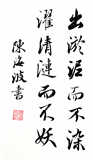 出淤泥而不染
濯清漣而不妖
陳海波書